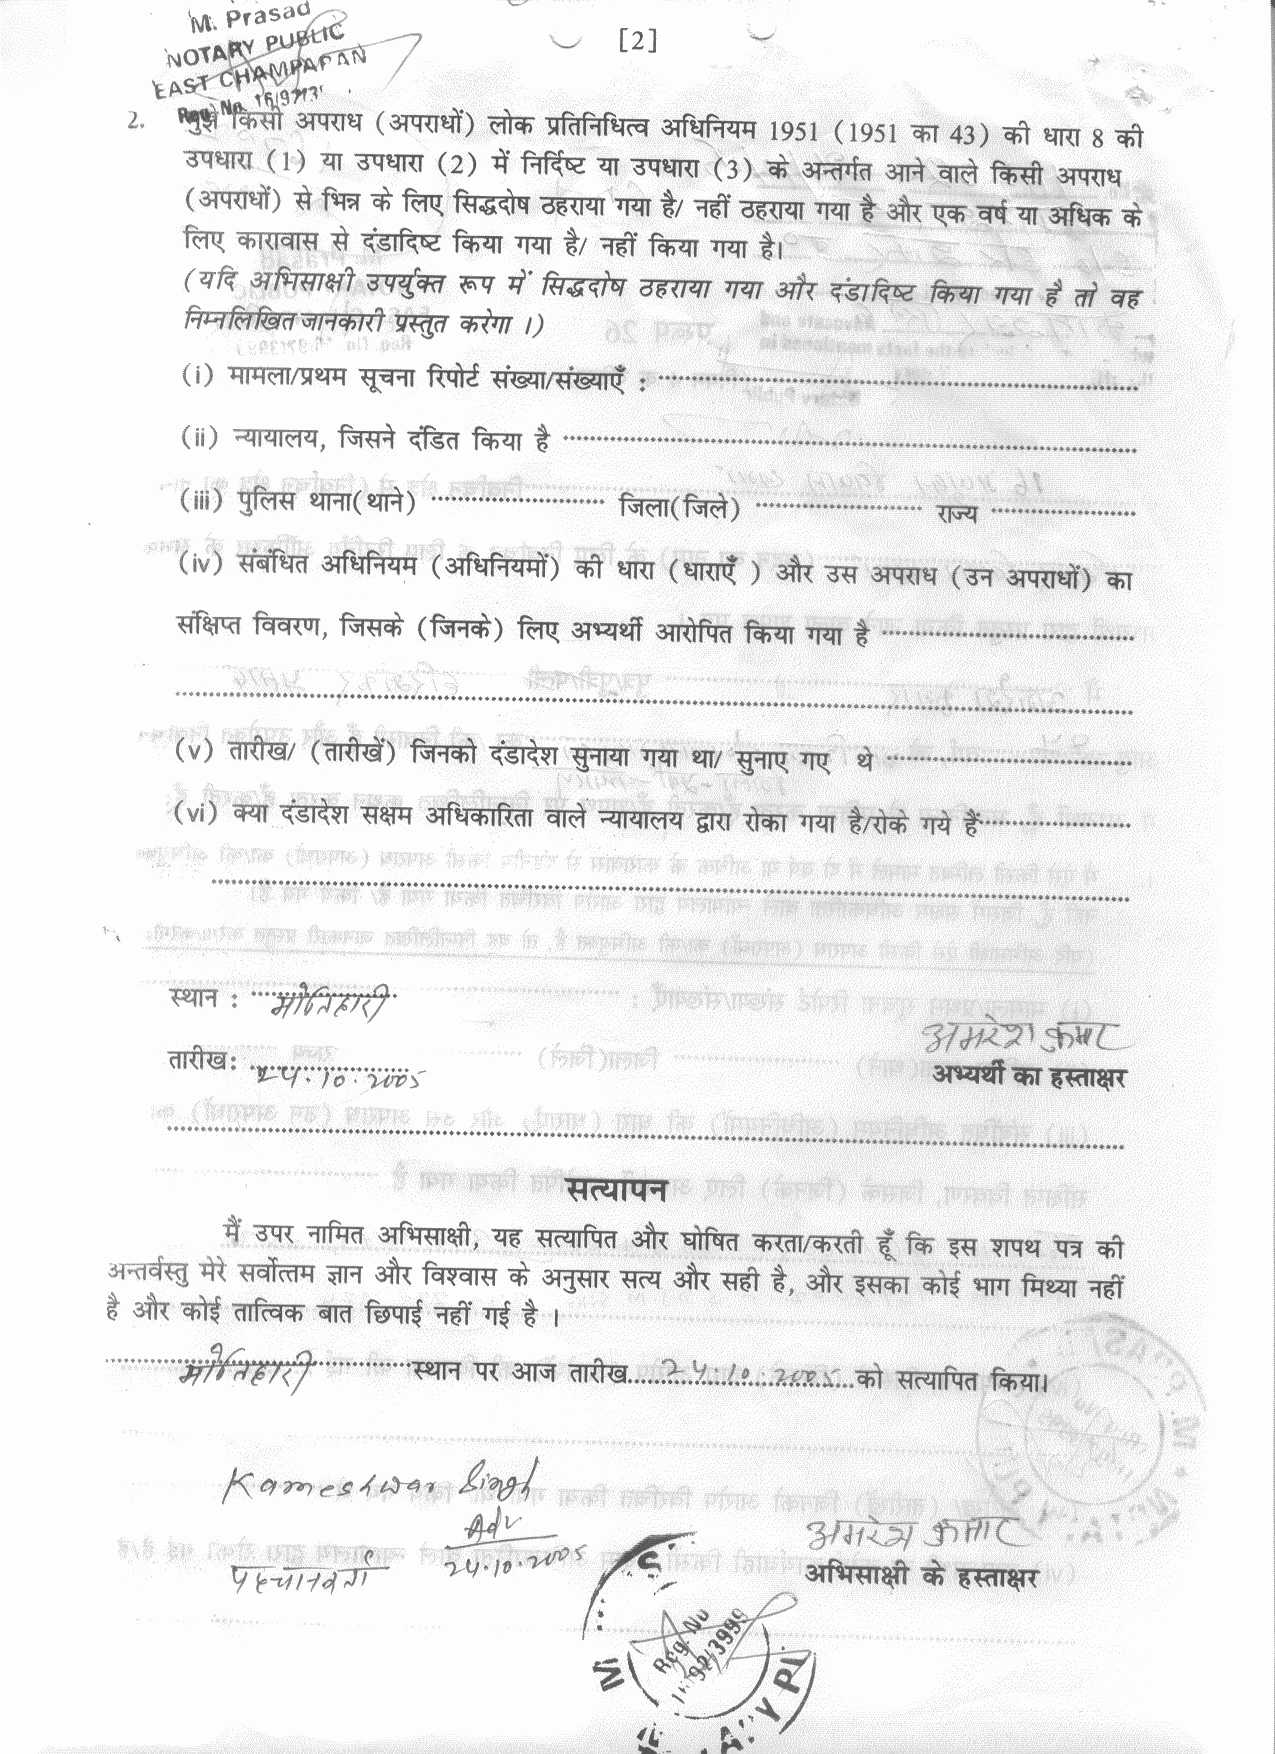 M. Prasad
NOTARY PUBLIC
EAST CHAMPARAN
Reg. No.
[2]
2. मुझे किसी अपराध (अपराधों) लोक प्रतिनिधित्व अधिनियम 1951 (1951 का 43) की धारा 8 की
उपधारा (1) या उपधारा (2) में निर्दिष्ट या उपधारा (3) के अन्तर्गत आने वाले किसी अपराध
(अपराधों) से भिन्न के लिए सिद्धदोष ठहराया गया है/ नहीं ठहराया गया है और एक वर्ष या अधिक के
लिए कारावास से दंडादिष्ट किया गया है/ नहीं किया गया है।
(यदि अभिसाक्षी उपर्युक्त रूप में सिद्धदोष ठहराया गया और दंडादिष्ट किया गया है तो वह
निम्नलिखित जानकारी प्रस्तुत करेगा ।)
(i) मामला/प्रथम सूचना रिपोर्ट संख्या/संख्याएँ :
(ii) न्यायालय, जिसने दंडित किया है
(iii) पुलिस थाना(थाने) जिला(जिले) राज्य
(iv) संबंधित अधिनियम (अधिनियमों) की धारा (धाराएँ ) और उस अपराध (उन अपराधों) का
संक्षिप्त विवरण, जिसके (जिनके) लिए अभ्यर्थी आरोपित किया गया है
(v) तारीख/ (तारीखें) जिनको दंडादेश सुनाया गया था/ सुनाए गए थे
(vi) क्या दंडादेश सक्षम अधिकारिता वाले न्यायालय द्वारा रोका गया है/रोके गये हैं
स्थान : मोतिहारी
अमरेश कुमार
तारीख: 24.10.2005
अभ्यर्थी का हस्ताक्षर
सत्यापन
मैं उपर नामित अभिसाक्षी, यह सत्यापित और घोषित करता/करती हूँ कि इस शपथ पत्र की
अन्तर्वस्तु मेरे सर्वोत्तम ज्ञान और विश्वास के अनुसार सत्य और सही है, और इसका कोई भाग मिथ्या नहीं
है और कोई तात्विक बात छिपाई नहीं गई है ।
मोतिहारी स्थान पर आज तारीख 24.10.2005 को सत्यापित किया।
Kameshwar Singh
Adv
24.10.2005
पहचानकर्ता
अमरेश कुमार
अभिसाक्षी के हस्ताक्षर
Reg. No